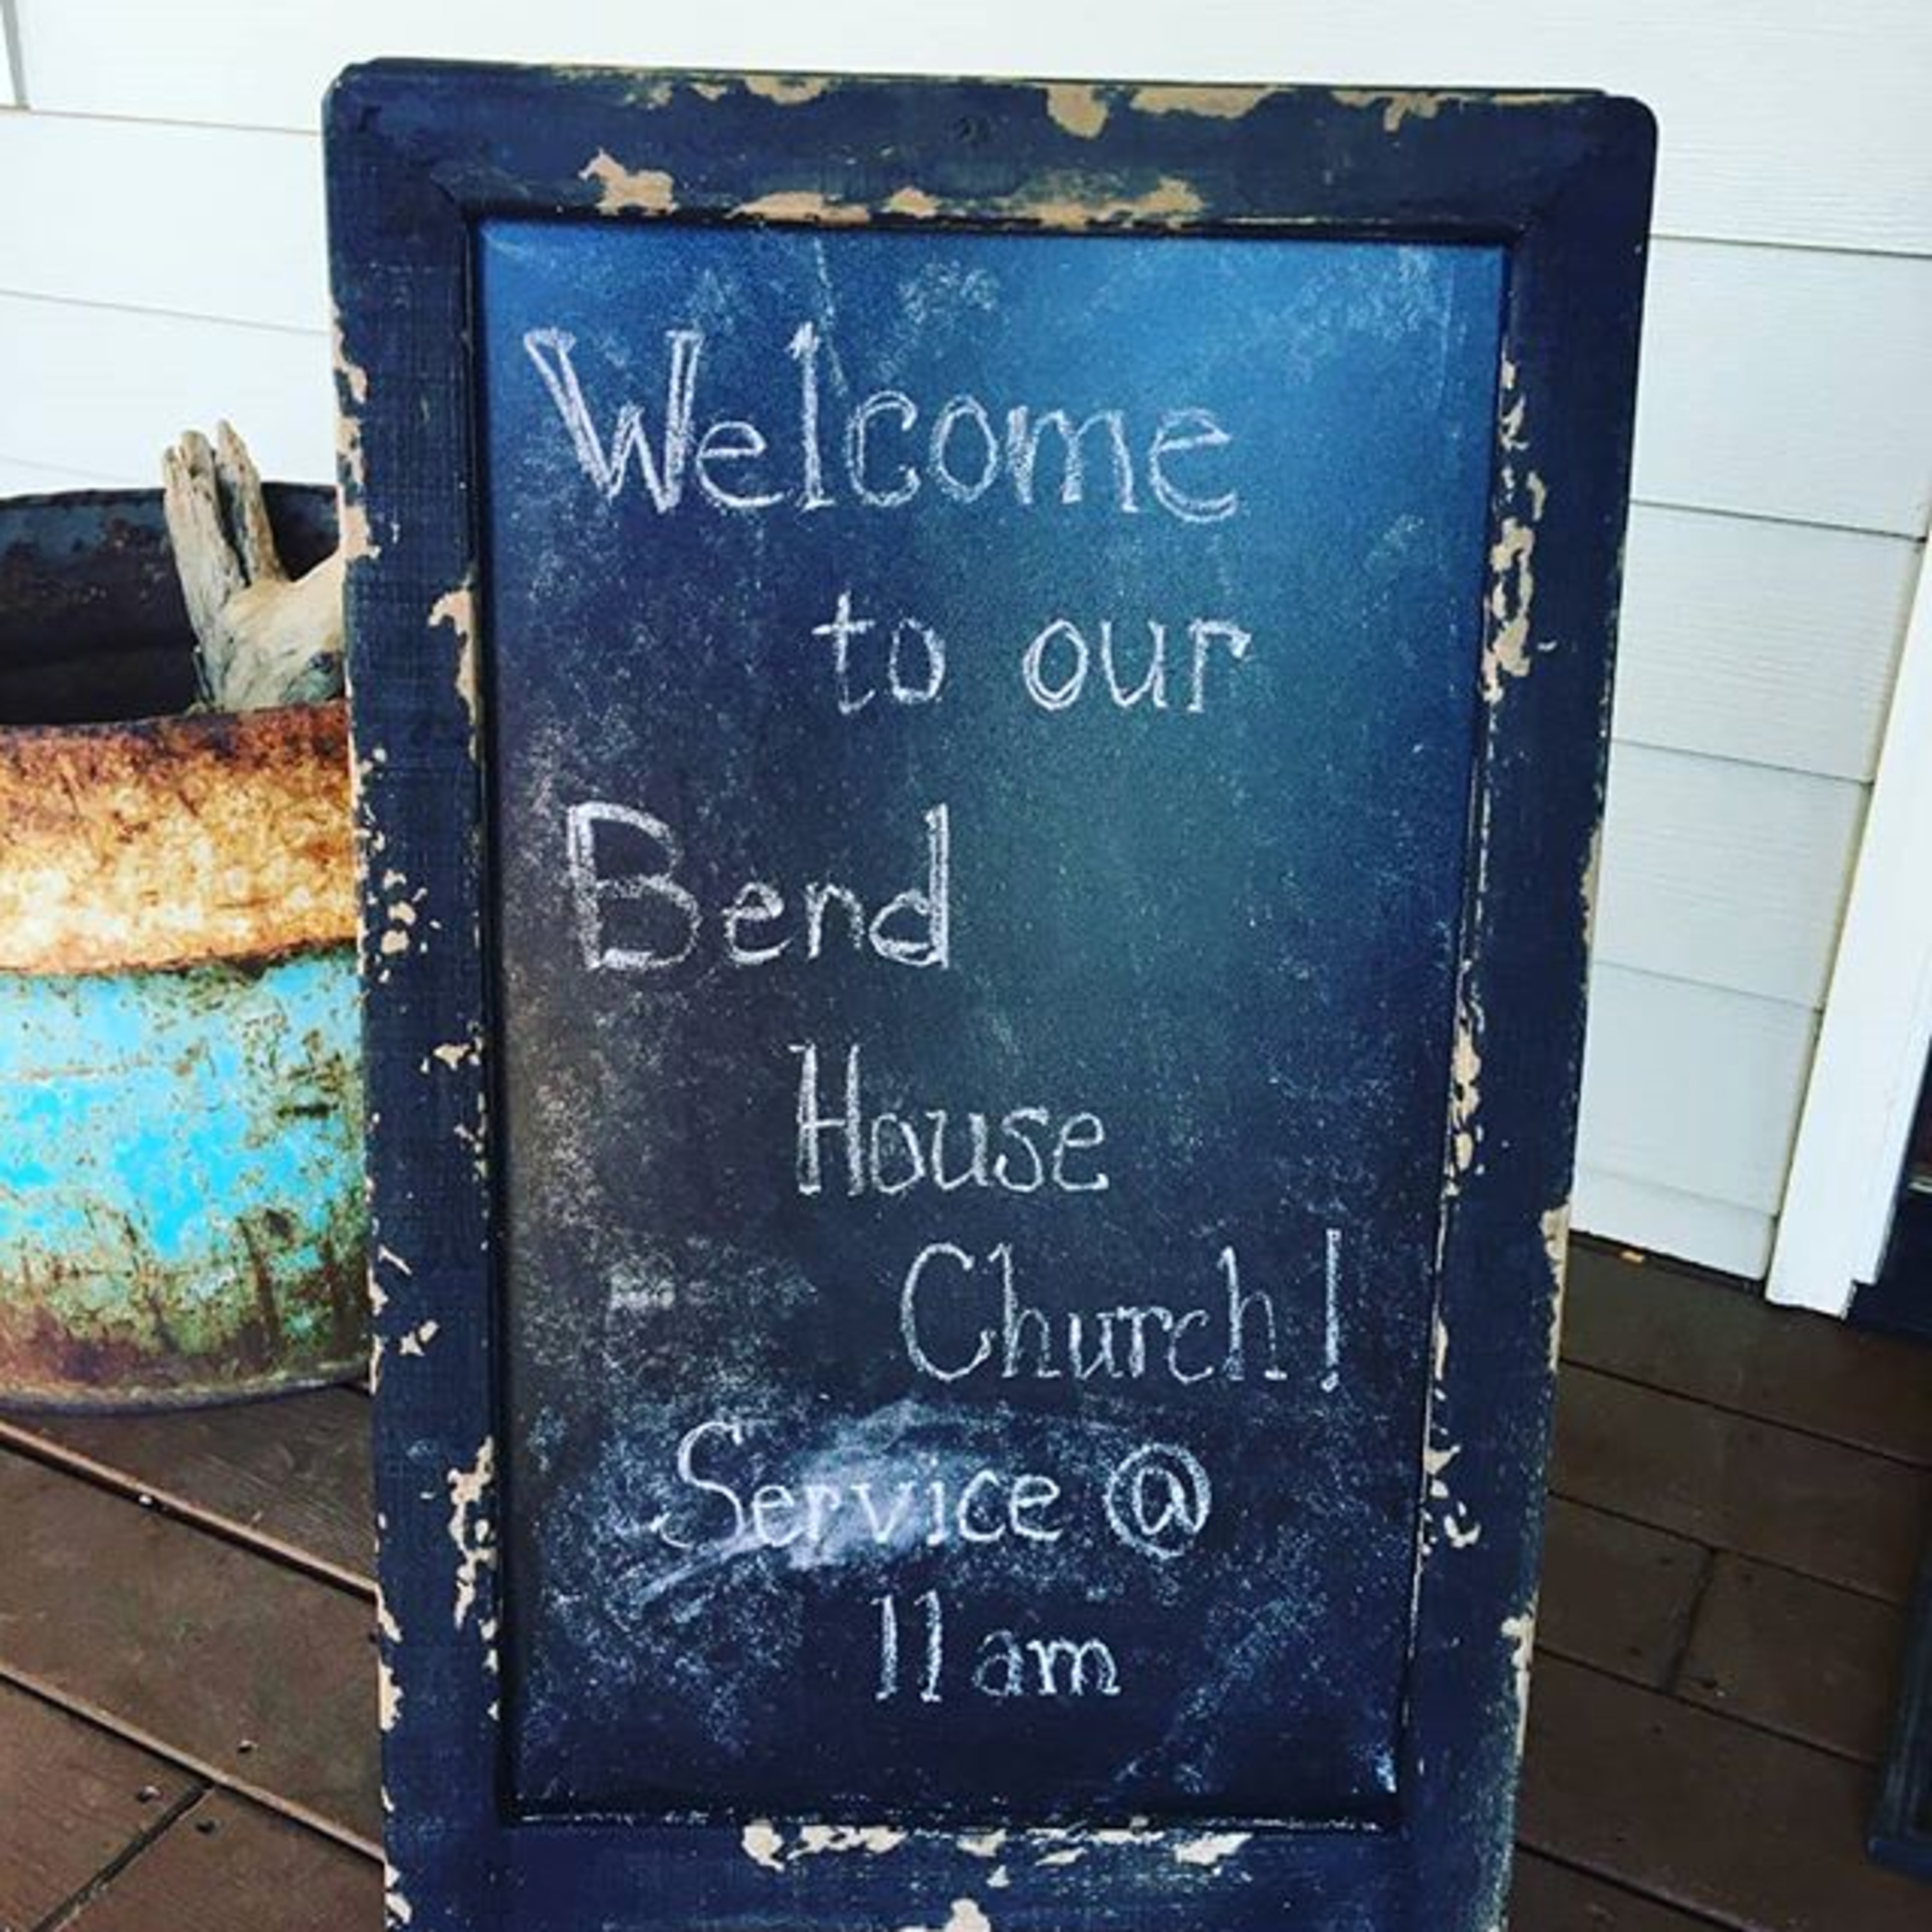 Welcome
to our
Bend
House
Church!
Service @
11 am